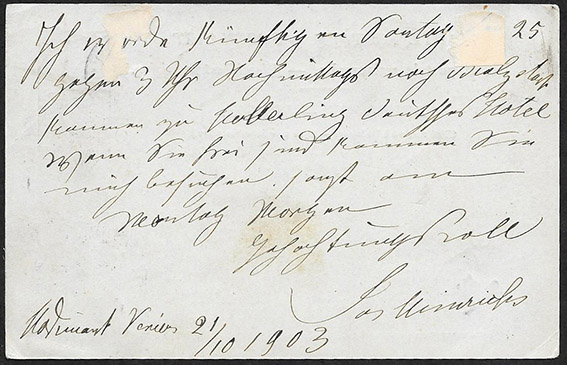 Ich werde künftigen Sontag 25
gegen 3 Uhr Nachmittags nach
kommen zu Kellerling deutsches Hotel
wenn Sie frei sind kommen Sie
mich besuchen sonst am
Montag Morgen
Hochachtungsvoll
Jos Hinrichs
21/10 1903